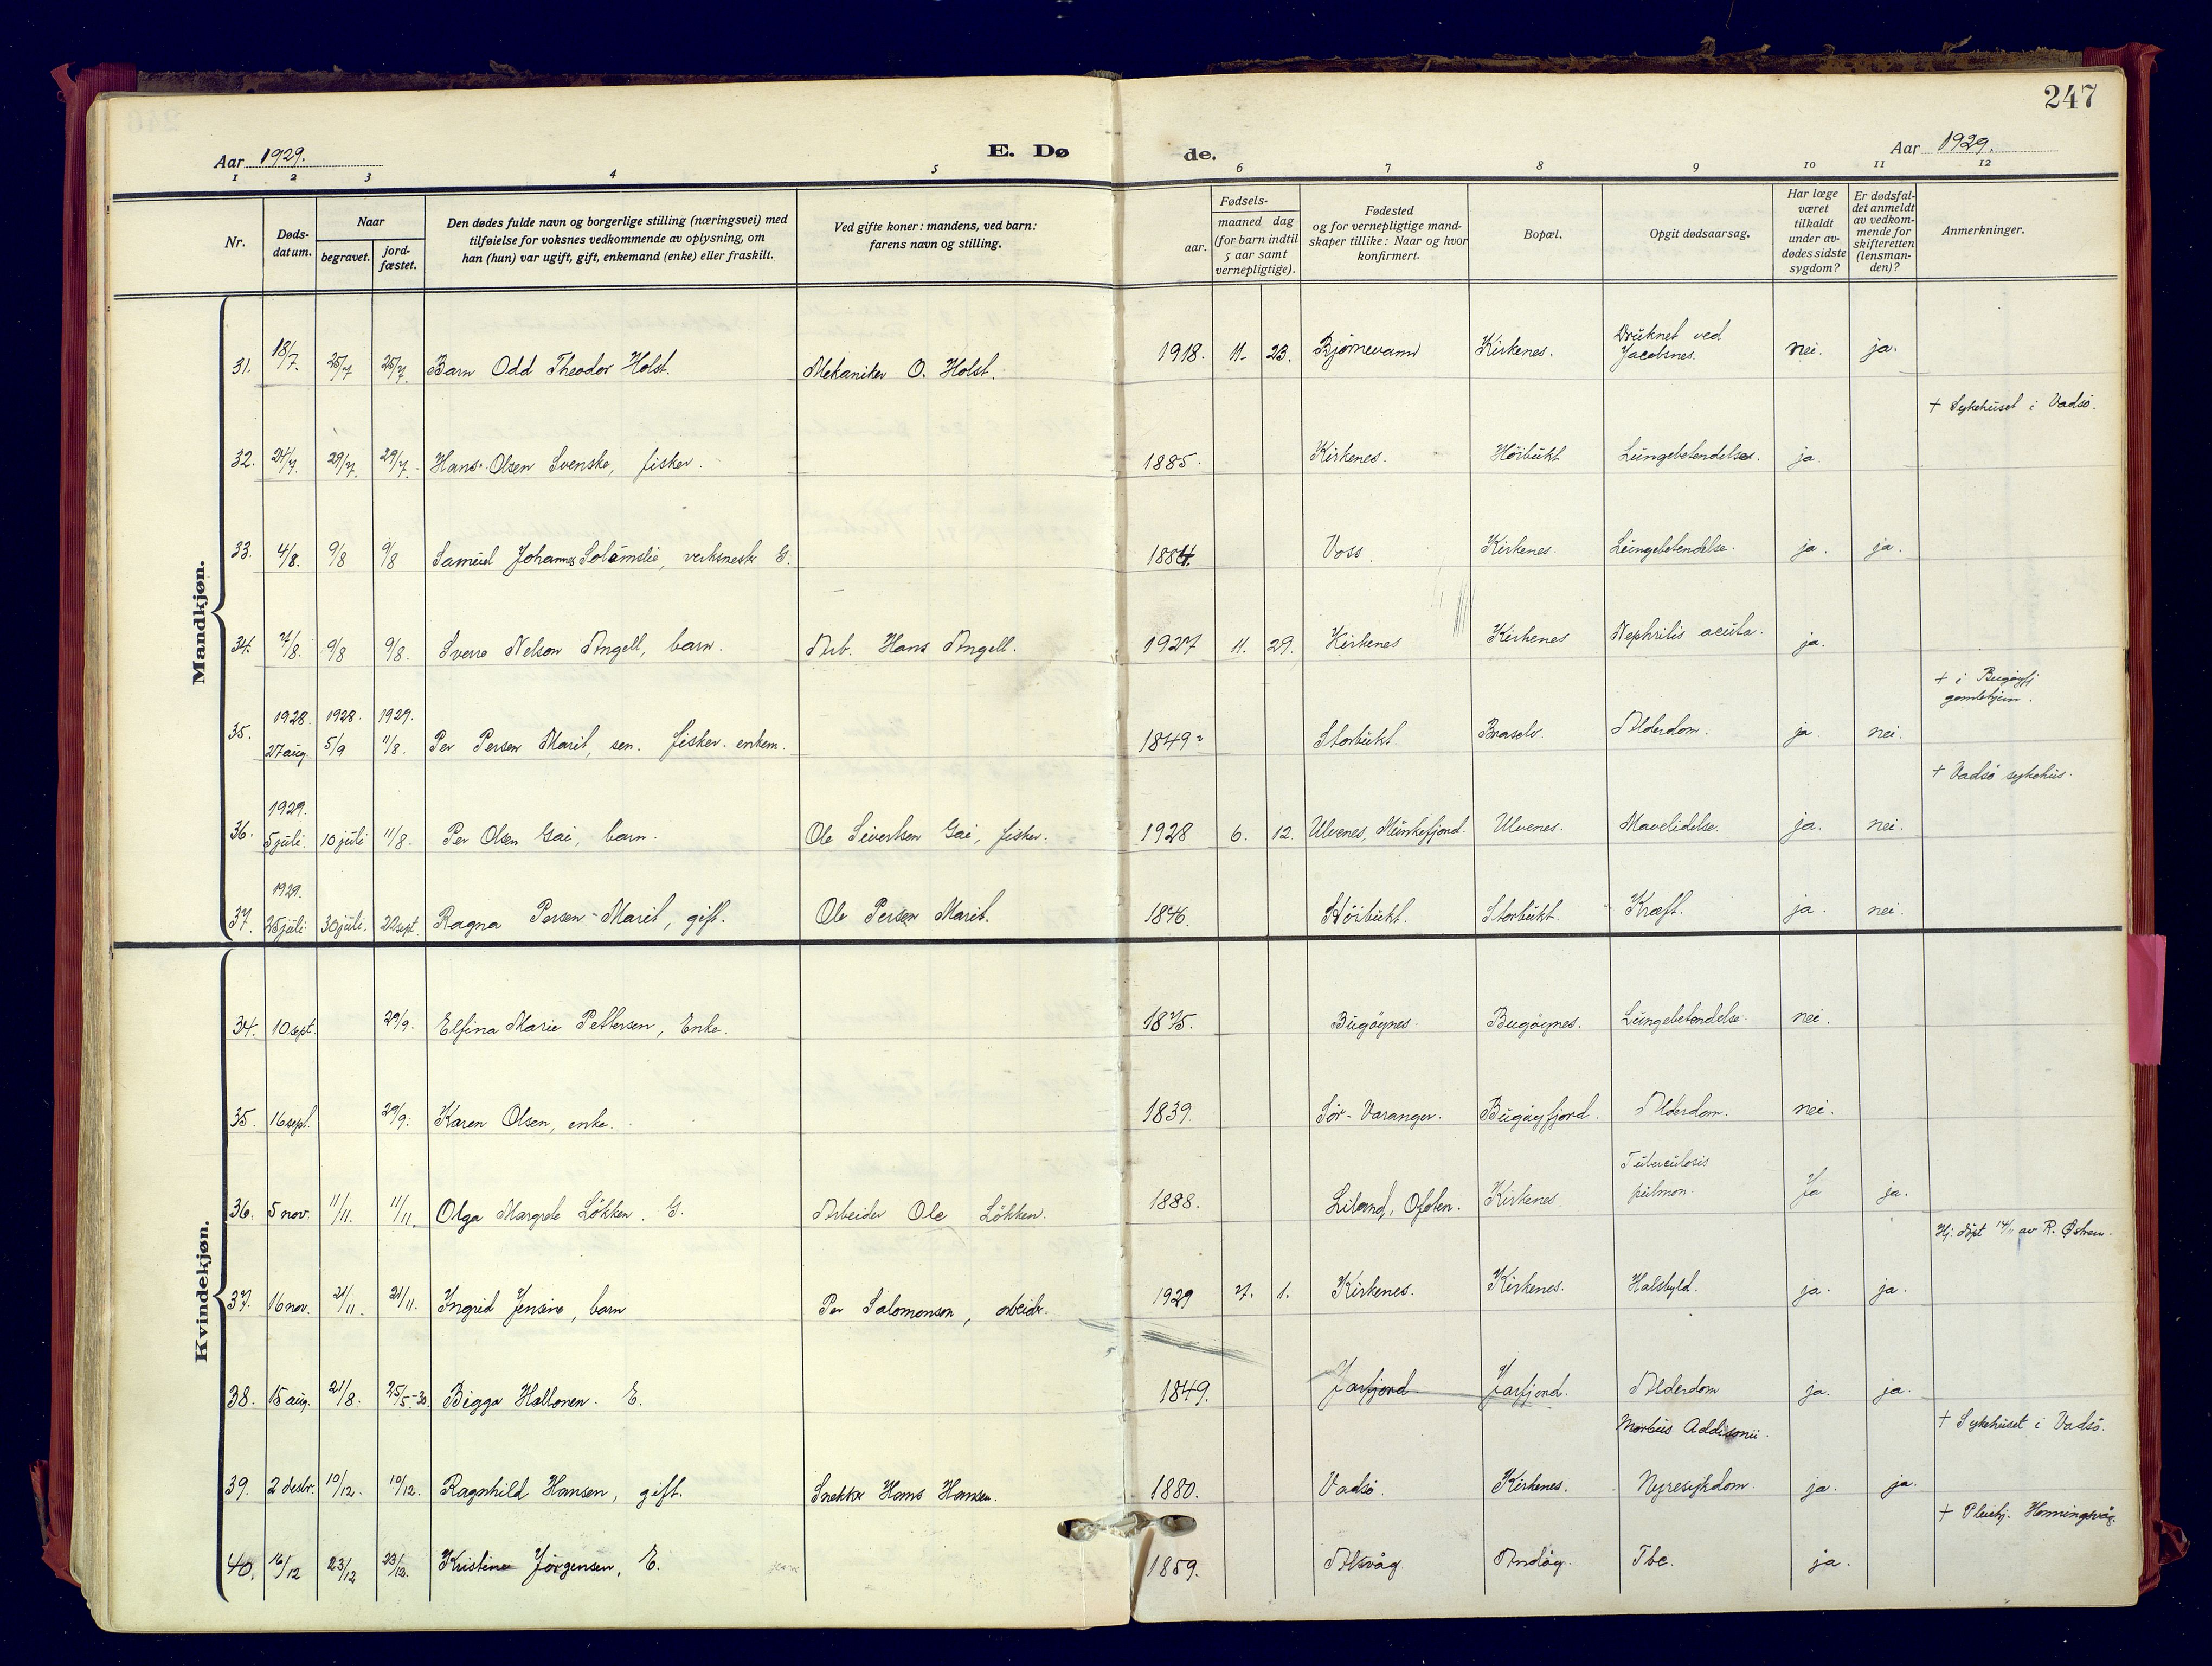 247
Aar 1929.
E. Døde.
Aar 1929.
1 2 3 4 5 6 7 8 9 10 11 12
Nr.
Døds-
datum.
Naar
begravet.
jord-
fæstet.
Den dødes fulde navn og borgerlige stilling (næringsvei) med
tilføielse for voksnes vedkommende av oplysning, om
han (hun) var ugift, gift, enkemand (enke) eller fraskilt.
Ved gifte koner: mandens, ved barn:
farens navn og stilling.
Fødsels-
aar.
maaned dag
(for barn indtil
5 aar samt
vernepligtige).
Fødested
og for vernepligtige mand-
skaper tillike: Naar og hvor
konfirmert.
Bopæl.
Opgit dødsaarsag.
Har læge
været
tilkaldt
under av-
dødes sidste
sygdom?
Er dødsfal-
det anmeldt
av vedkom-
mende for
skifteretten
(lensman-
den)?
Anmerkninger.
Mandkjøn.
31. 18/7. 25/7 25/7. Barn Odd Theodor Holst. Mekaniker O. Holst. 1918. 11. 23. Bjørnevann Kirkenes. Druknet ved
Jacobsnes. nei. ja.
+ Sykehuset i Vadsö.
32. 24/7. 29/7. 29/7. Hans Olsen Svenske, fisker. 1885. Kirkenes. Höibukt Lungebetendelse. ja.
33. 4/8. 9/8 9/8 Samuel Johannes, G. 1884. Voss. Kirkenes. Lungebetendelse. ja. ja.
34. 4/8. 9/8 9/8. Sverre Nelson Angell, barn. Arb. Hans Angell. 1927 11. 29. Kirkenes Kirkenes Nephritis acuta. ja.
+ i Bugöyfj
gamlehjem.
35. 1928. 1928. 1929.
27 aug. 5/9 11/8. Per Persen Marit, sen. fisker. enkem. 1849? Storbukt. Braselv. Alderdom. ja. nei.
+ Vadsö sykehus.
36. 1929.
5 juli. 10 juli 11/8. Per Olsen Gai, barn. Ole Sivertsen Gai, fisker. 1928 6. 12. Ulvenes, Munkefjord. Ulvenes. Mavelidelse. ja. nei.
37. 1929.
25 juli. 30 juli. 22 sept. Ragna Persen-Marit, gift. Ole Persen Marit. 1876. Höibukt. Storbukt. Kræft. ja. nei.
Kvindekjøn.
34. 10 sept. 29/9. Elfina Marie Pettersen, Enke. 1875. Bugöynes. Bugöynes. Lungebetendelse. nei.
35. 16 sept. 29/9. Karen Olsen, enke. 1839. Sör-Varanger. Bugöyfjord. Alderdom. nei.
36. 5 nov. 11/11. 11/11. Olga Margrete Lökken. G. Arbeider Ole Lökken. 1888. Liland, Ofoten. Kirkenes. Tuberculosis
pulmon. Ja ja.
Hj. döpt 14/11 av R. Østrem.
37. 16 nov. 21/11. 21/11. Ingrid Jensine, barn Per Salomonsen, arbeider. 1929 7. 1. Kirkenes. Kirkenes. Halsbyld. ja. ja.
38. 15 aug. 21/8. 25/5-30. Bigga Hallonen. E. 1849. Jarfjord Jarfjord. Alderdom ja. ja.
Morbus Addisonii.
+ Sykehuset i Vadsö.
39. 2 desbr. 10/12. 10/12. Ragnhild Hansen, gift. Snekker Hans Hansen. 1880. Vadsö. Kirkenes. Nyresykdom. ja. ja.
+ Pleiehj. Honningsvåg.
40. 16/12 23/12 23/12. Kristine Jörgensen, E. 1859. Alsvåg. Andöy. Tbc. ja.